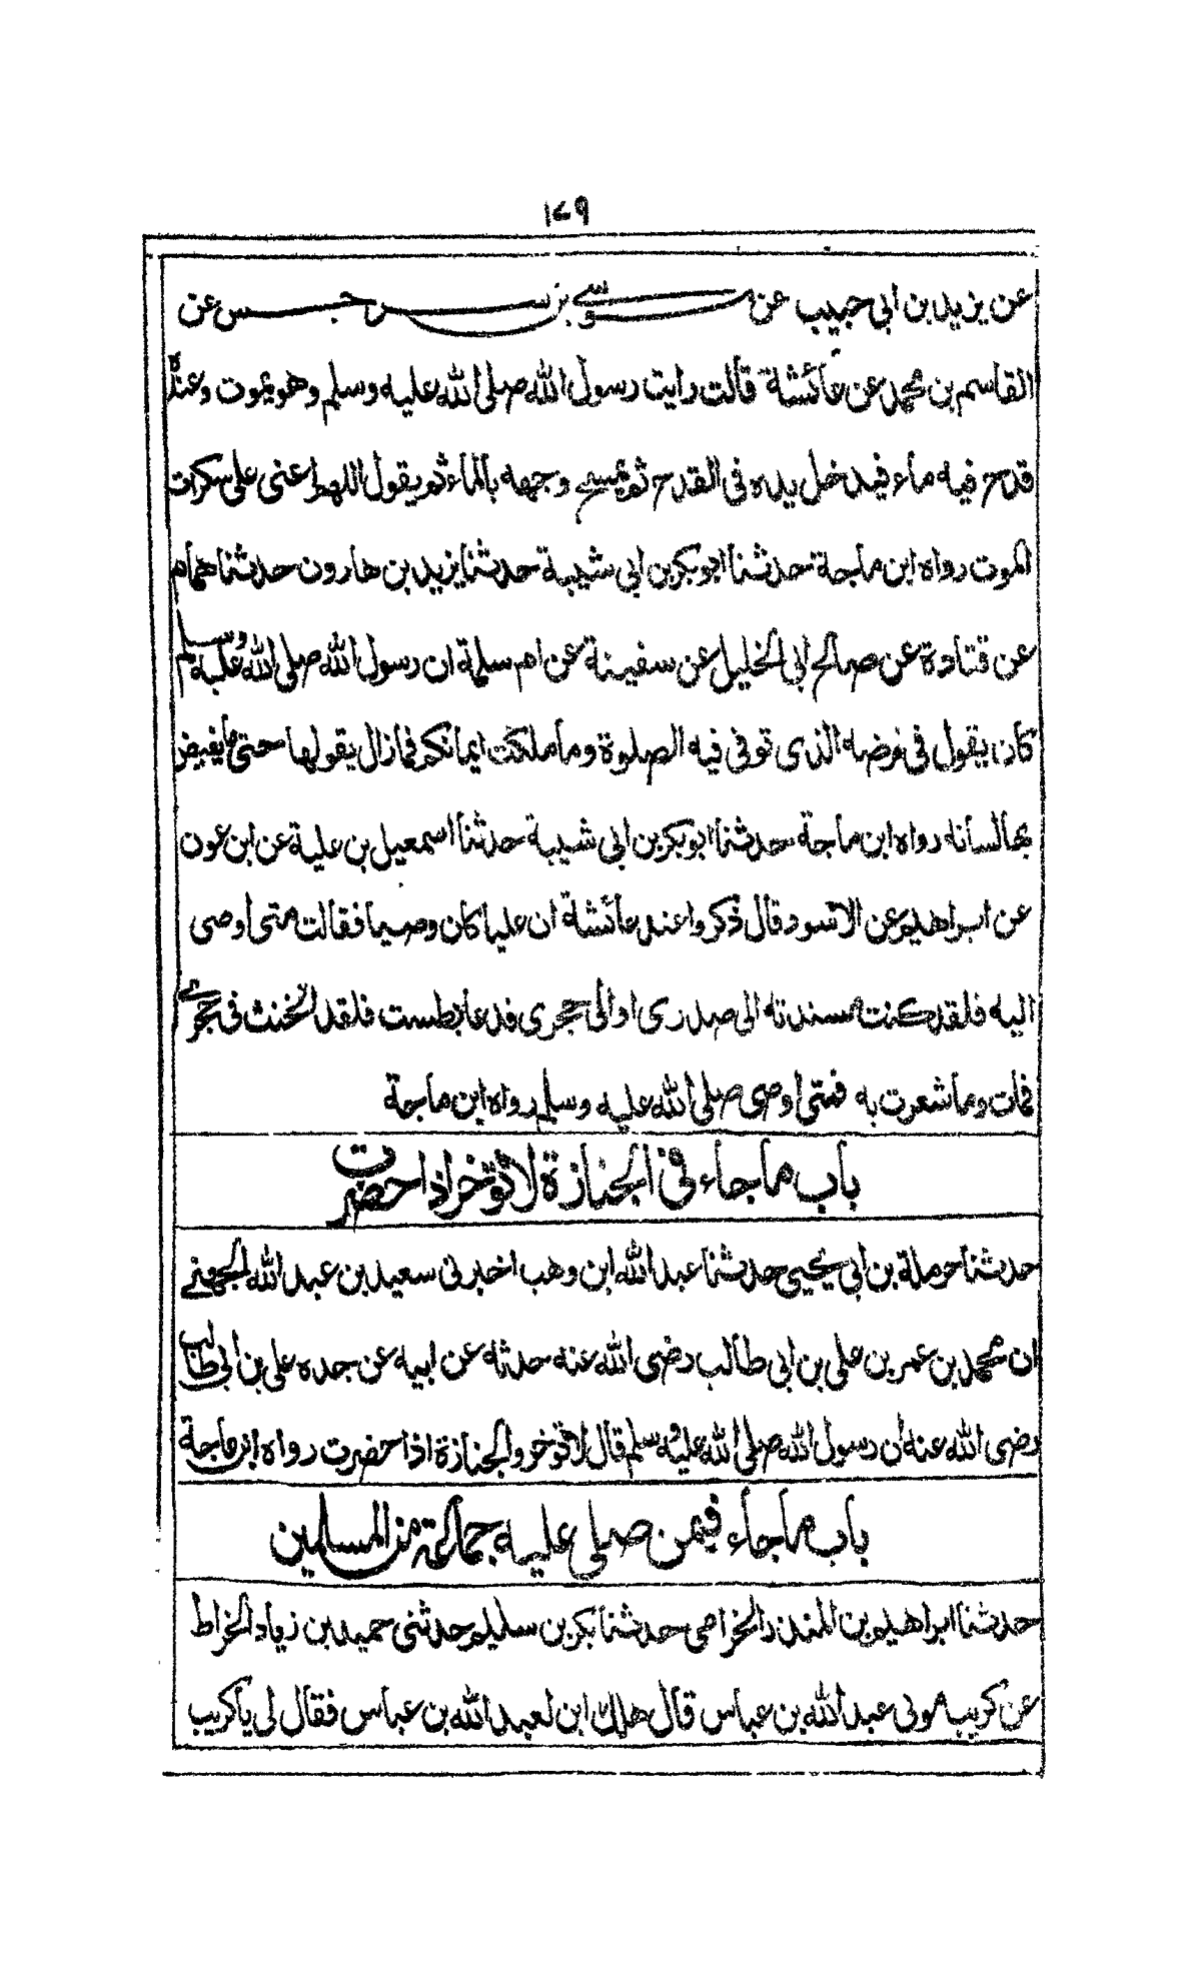 ١٧٩
عن يزيد بن ابي حبيب عن موسى بن سرجس عن
القاسم بن محمد عن عائشة قالت رايت رسول الله صلى الله عليه وسلم وهو يموت وعنده
قدح فيه ماء فيدخل يده في القدح ثم يمسح وجهه بالماء ثم يقول اللهم اعنى على سكرات
الموت رواه ابن ماجة حدثنا ابو بكر بن ابي شيبة حدثنا يزيد بن هارون حدثنا همام
عن قتادة عن صالح ابي الخليل عن سفينة عن ام سلمة ان رسول الله صلى الله عليه وسلم
كان يقول في مرضه الذى توفى فيه الصلوة وما ملكت ايمانكم فما زال يقولها حتى ما يفيض
بها لسانه رواه ابن ماجة حدثنا ابو بكر بن ابي شيبة حدثنا اسمعيل بن علية عن ابن عون
عن ابراهيم عن الاسود قال ذكروا عند عائشة ان عليا كان وصيا فقالت متى اوصى
اليه فلقد كنت مسندته الى صدرى او الى حجرى فدعا بطست فلقد انخنث فى حجرى
فمات وما شعرت به فمتى اوصى صلى الله عليه وسلم رواه ابن ماجة
باب ما جاء فى الجنازة لا تؤخر اذا حضرت
حدثنا حرملة بن ابي يحيى حدثنا عبد الله ابن وهب اخبرنى سعيد بن عبد الله الجهنى
ان محمد بن عمر بن على بن ابى طالب رضى الله عنه حدثه عن ابيه عن جده على بن ابى طالب
رضى الله عنه ان رسول الله صلى الله عليه وسلم قال لا تؤخروا الجنازة اذا حضرت رواه ابن ماجة
باب ما جاء فيمن صلى عليه جماعة من المسلمين
حدثنا ابراهيم بن المنذر الخزامى حدثنا بكر بن سليم حدثنى حميد بن زياد الخراط
عن كريب مولى عبد الله بن عباس قال هلك ابن لعبد الله بن عباس فقال لى يا كريب